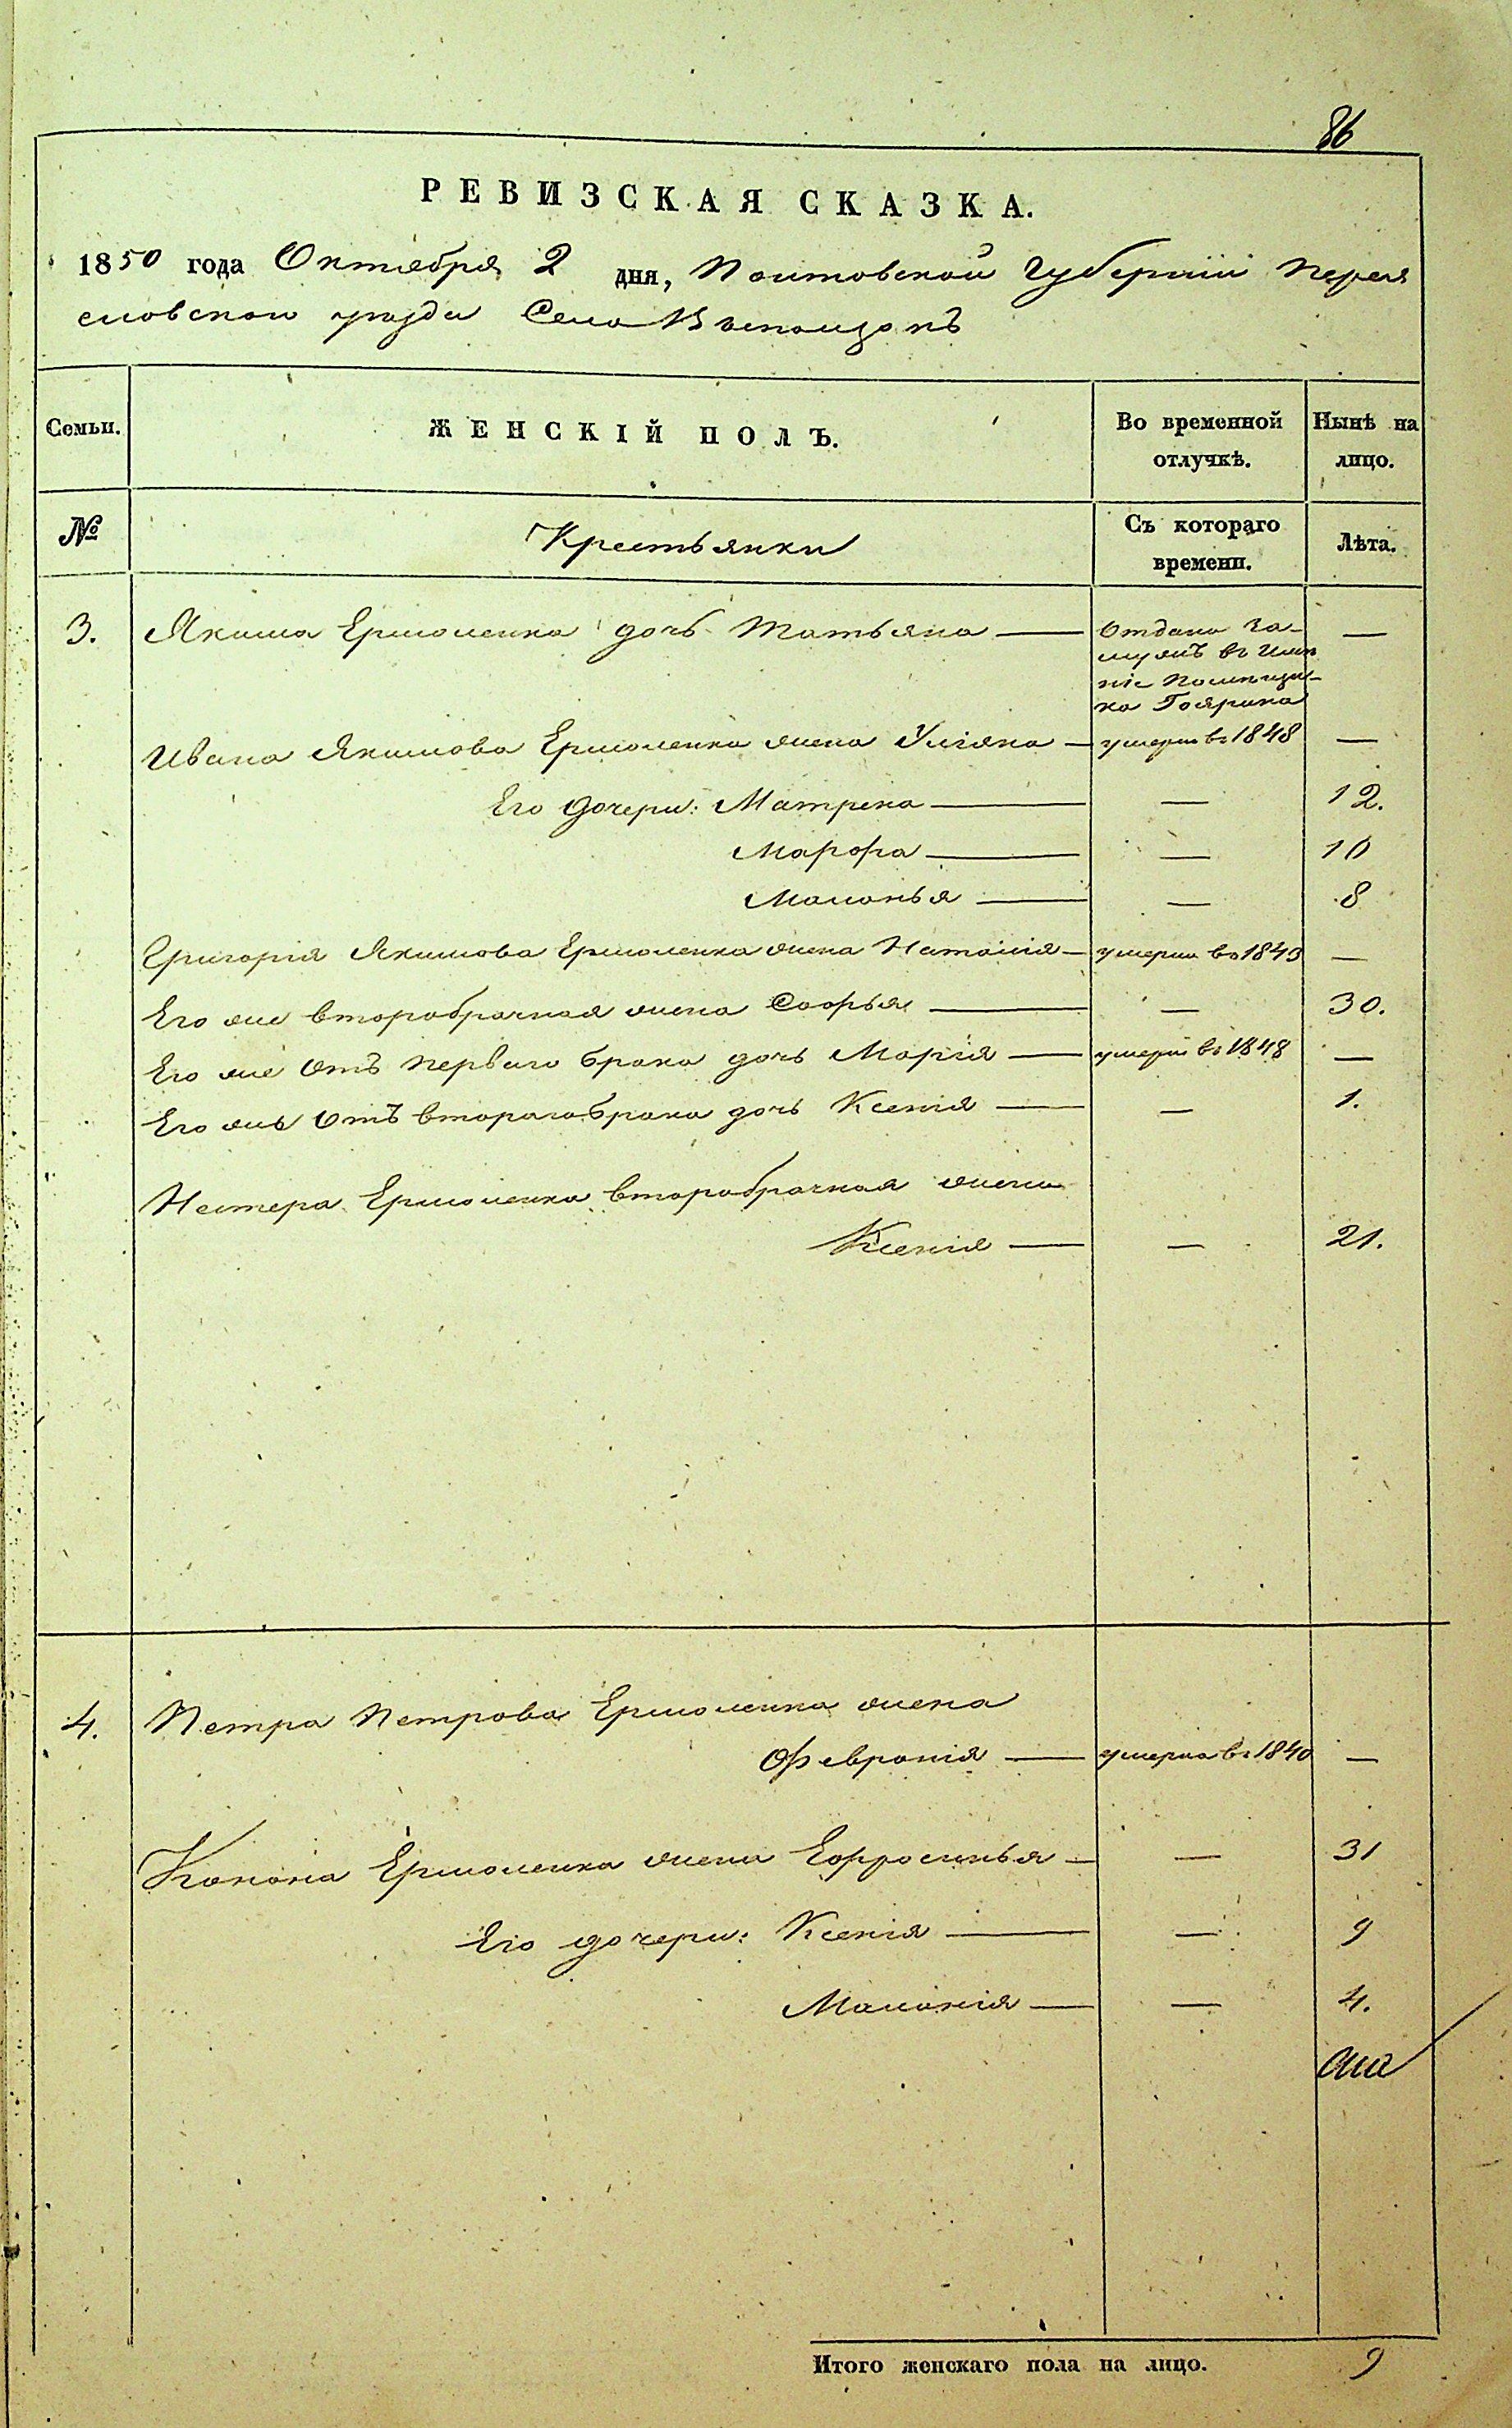 86
РЕВИЗСКАЯ СКАЗКА.
1850 года Октября 2 дня, Полтовской Губерніи Перея
словскаго уезда Села
Семьи. ЖЕНСКІЙ ПОЛЪ. Во временной отлучкѣ. Нынѣ на лицо.
№ Крестьянки Съ котораго времени. Лѣта.
3. Якима Ермоленка дочь Татьяна — Отдана за- —
мужъ въ име
ніе помещи-
ка
Ивана Якимова Ермоленка жена Уліяна — умерла въ 1848 —
Его дочери: Матрена — — 12.
Марфа — — 10
Маланья — — 8
Григорія Якимова Ермоленка жена Наталія — умерла въ 1843 —
Его же второбрачная жена Софья — — 30.
Его же отъ перваго брака дочь Марія — умерла въ 1848 —
Его же отъ втораго брака дочь Ксенія — — 1.
Нестера Ермоленка второбрачная жена
Ксенія — — 21.
4. Петра Петрова Ермоленка жена
Февронія — умерла въ 1840 —
Конона Ермоленка жена Ефросинья — — 31
Его дочери: Ксенія — — 9
Маланія — — 4.
Итого женскаго пола на лицо. 9